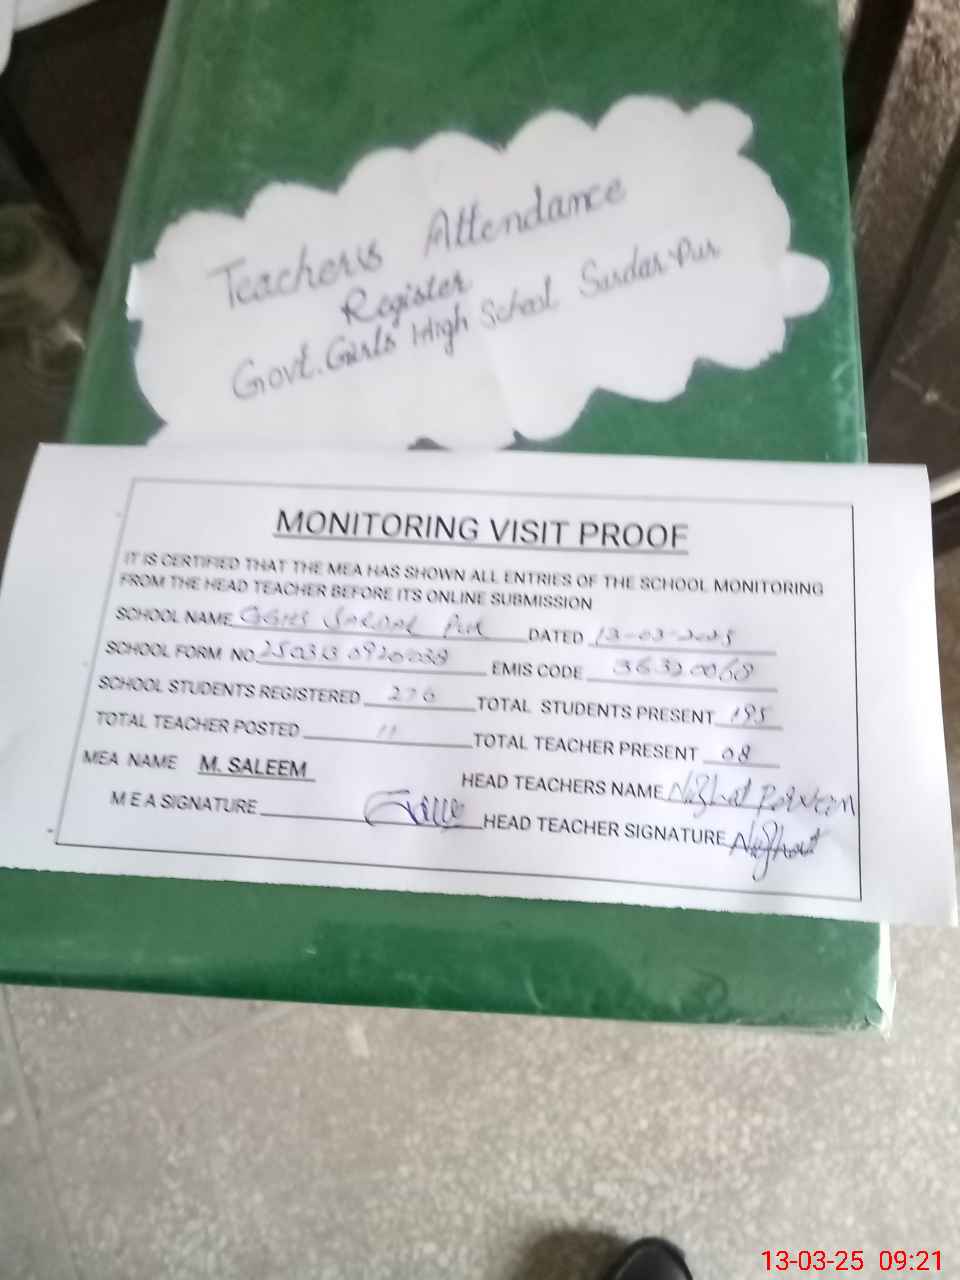 Teacher's Attendance
Register
Govt. Girls High School Sardar Pur
MONITORING VISIT PROOF
IT IS CERTIFIED THAT THE MEA HAS SHOWN ALL ENTRIES OF THE SCHOOL MONITORING
FROM THE HEAD TEACHER BEFORE ITS ONLINE SUBMISSION
SCHOOL NAME GGHS SARDAR PUR DATED 13-03-2025
SCHOOL FORM NO EMIS CODE 36320068
SCHOOL STUDENTS REGISTERED 276 TOTAL STUDENTS PRESENT 195
TOTAL TEACHER POSTED 11 TOTAL TEACHER PRESENT 08
MEA NAME M. SALEEM HEAD TEACHERS NAME Nighat Parveen
M E A SIGNATURE HEAD TEACHER SIGNATURE Nighat
13-03-25 09:21